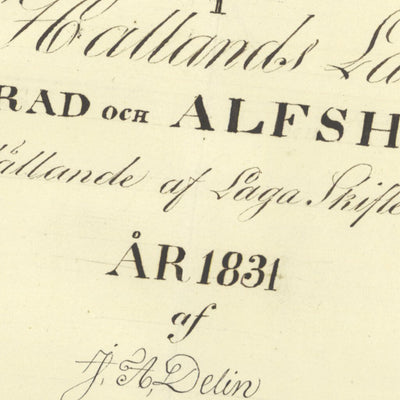 i
Hallands Lä
RAD OCH ALFSH
ållande af Laga Skifte
ÅR 1831
af
J. A. Delin